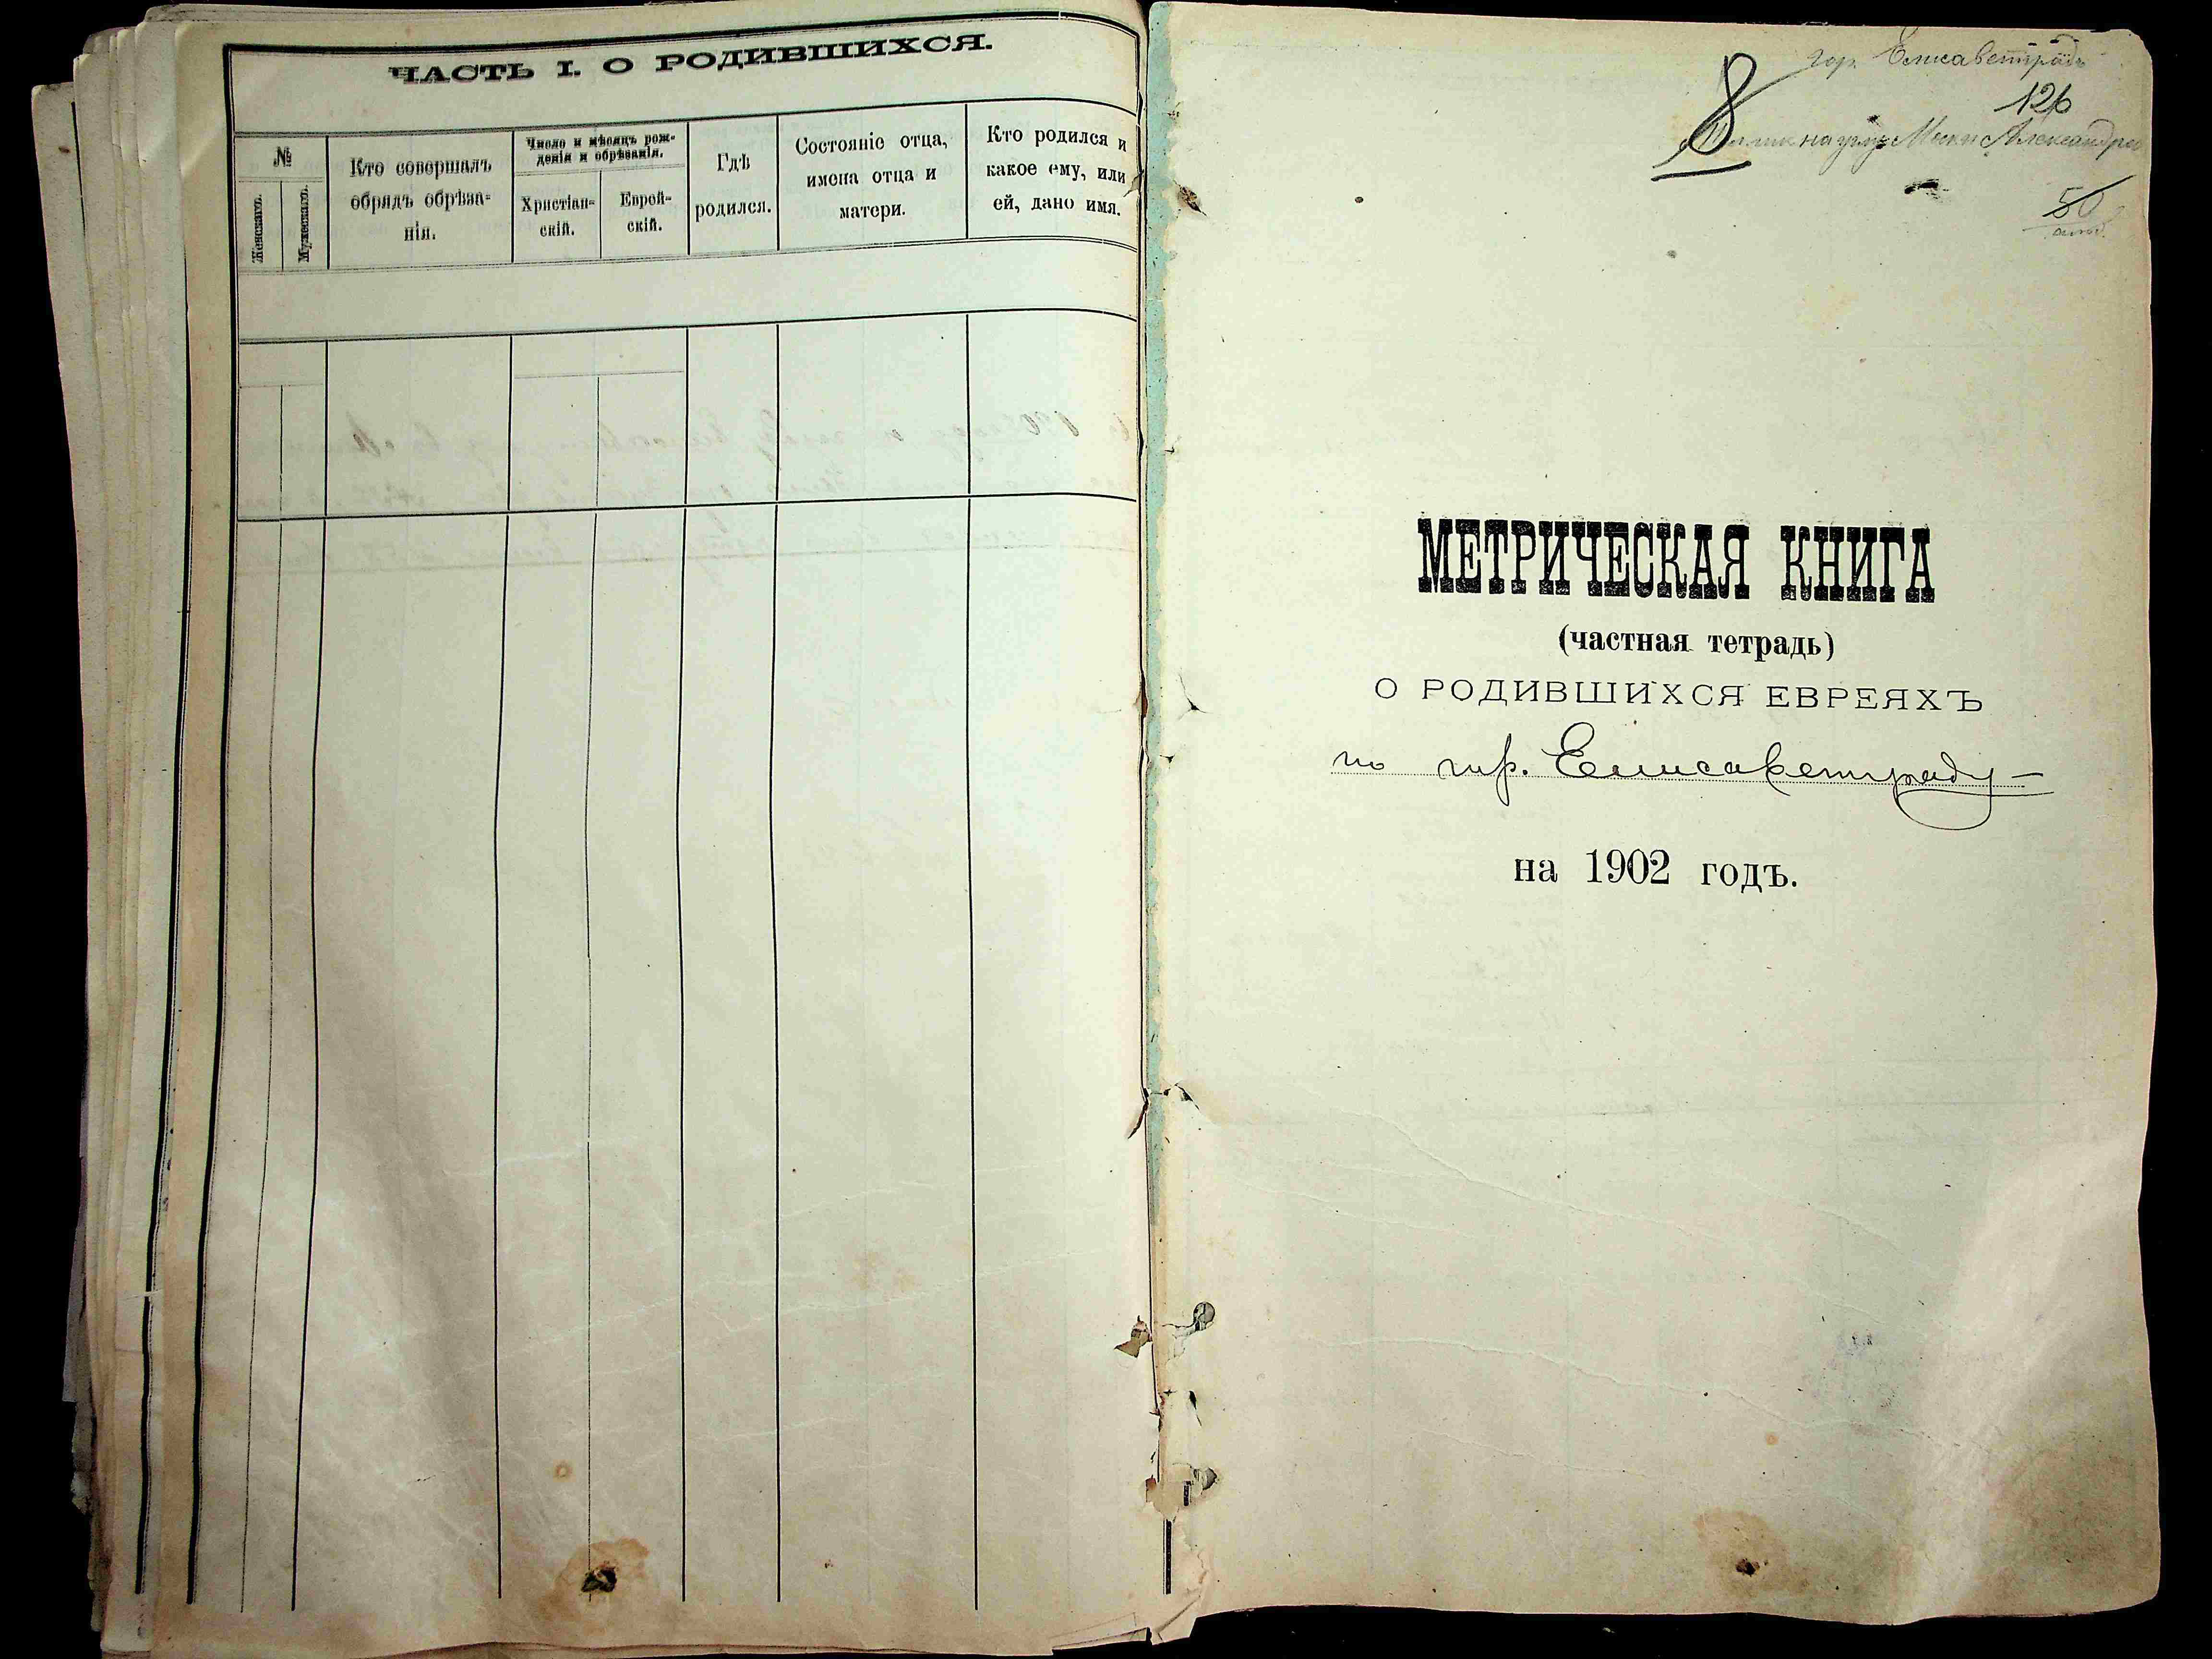 ЧАСТЬ I. О РОДИВШИХСЯ.
№
Женскаго.
Мужескаго.
Кто совершалъ
обрядъ обрѣза-
нія.
Число и мѣсяцъ рож-
денія и обрѣзанія.
Христіан-
скій.
Еврей-
скій.
Гдѣ
родился.
Состояніе отца,
имена отца и
матери.
Кто родился и
какое ему, или
ей, дано имя.
гор. Елисаветградъ
8
126
на улиц Александро
50
МЕТРИЧЕСКАЯ КНИГА
(частная тетрадь)
О РОДИВШИХСЯ ЕВРЕЯХЪ
по гор. Елисаветграду
на 1902 годъ.